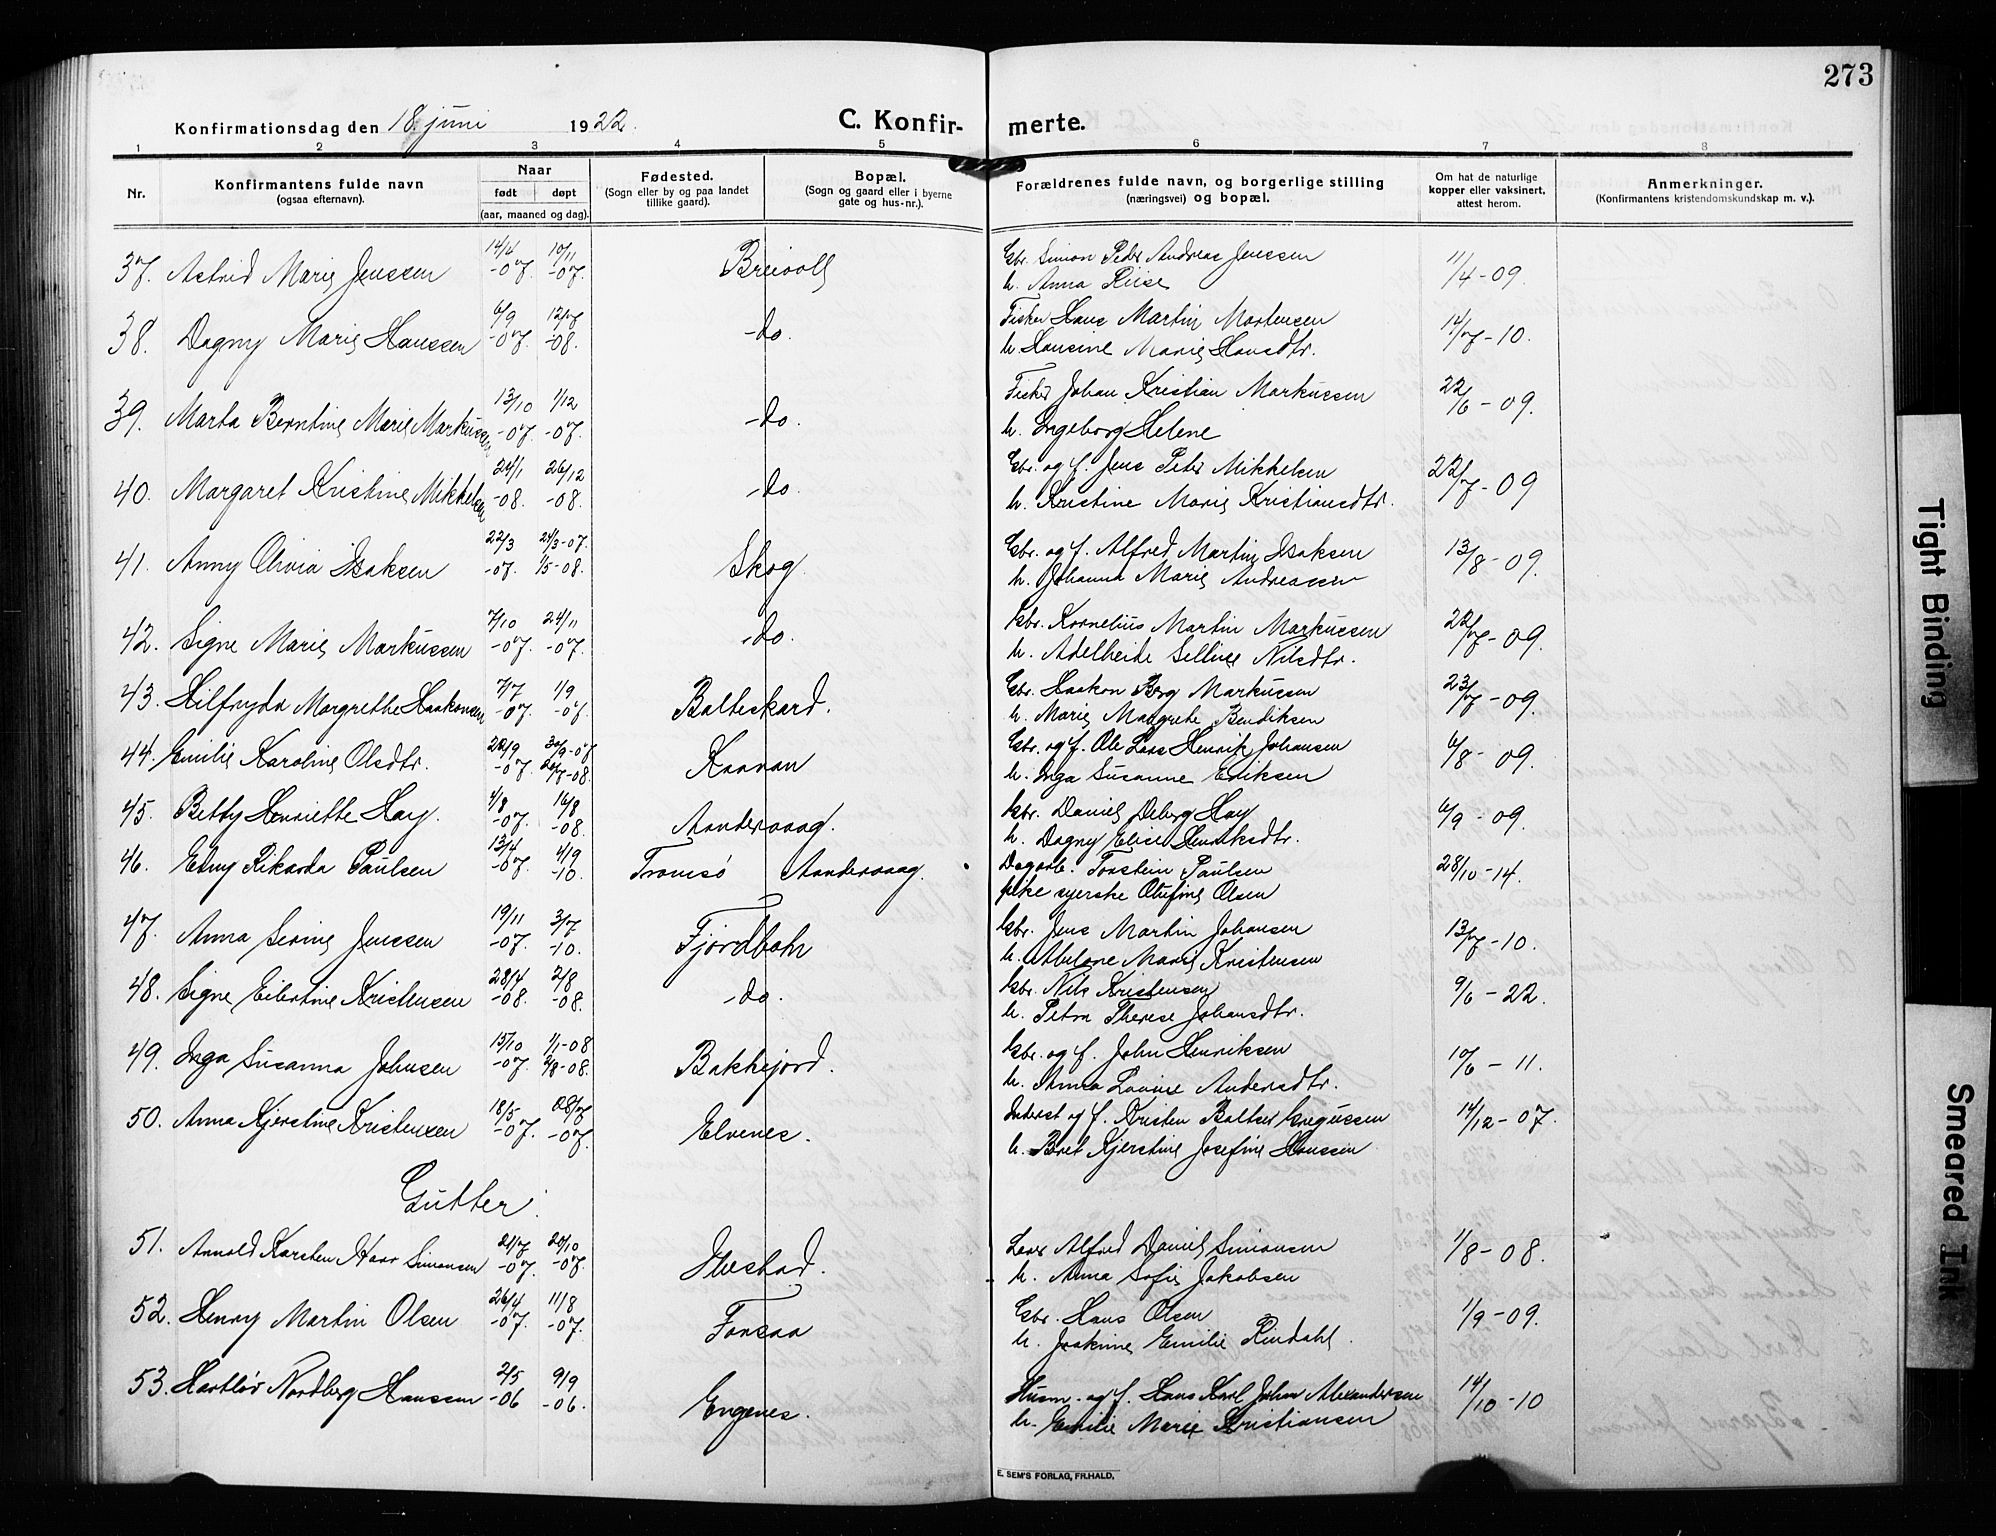 273
Konfirmationsdag den 18. juni 1922.
C. Konfir- merte.
1 2 3 4 5 6 7 8
Nr.
Konfirmantens fulde navn
(ogsaa efternavn).
Naar
født døpt
(aar, maaned og dag).
Fødested.
(Sogn eller by og paa landet
tillike gaard).
Bopæl.
(Sogn og gaard eller i byerne
gate og hus-nr.).
Forældrenes fulde navn, og borgerlige stilling
(næringsvei) og bopæl.
Om hat de naturlige
kopper eller vaksinert,
attest herom.
Anmerkninger.
(Konfirmantens kristendomskundskap m. v.).
37. Astrid Marie Jenssen 14/4 -07. 10/11 -07. Breivoll Gbr. Simon Peder Andreas Jenssen 11/4-09.
h. Anna Riise
38. Dagny Marie Hanssen 6/9 -07. 12/7 -08. -do. Fisker Hans Martin Mortensen 14/7-10.
h. Hansine Marie Hansdtr.
39. Marta Berntine Marie Markussen 13/10 -07. 1/12 -07. -do. Fisker Johan Kristian Markussen 22/6-09.
h. Ingeborg Helene
40. Margaret Kristine Mikkelsen 24/1 -08. 26/12 -08. -do. Gbr. og f. Jens Peder Mikkelsen 22/7-09
h. Kristine Marie Kristiansdtr.
41. Anny Olivia Isaksen 22/3 -07. 24/3-07. 1/5-08. Skog Gbr. og f. Alfred Martin Isaksen 13/8-09.
h. Johanna Marie Andreassen
42. Signe Marie Markussen 7/10 -07. 24/11 -07. -do. Gbr. Kornelius Martin Markussen 22/7-09.
h. Adelheide Selline Nilsdtr.
43. Hilfryda Margrethe Haakonsen 7/7 -07. 1/9 -07. Balteskard. Gbr. Haakon Berg Markussen 23/7-09.
h. Marie Margrete Bendiksen
44. Emilie Karoline Olsdtr. 28/9 -07. 30/9-07 26/7-08. Kravan Gbr. og f. Ole Lars Henrik Johansen 6/8-09.
h. Inga Susanne Eriksen
45. Betty Henriette Hay. 4/8 -07. 16/8 -08. Aandervaag. Gbr. Daniel Deberg Hay 6/9-09.
h. Dagny Elise Henriksdtr.
46. Edny Rikarda Paulsen 13/4 -07. 4/9 -10. Tromsø Aandervaag. Dagarb. Torstein Paulsen 28/10-14.
pike syerske Olufine Olsen
47. Anna Serine Jenssen 19/11 -07. 3/7 -10. Fjordbotn Gbr. Jens Martin Johansen 13/7-10.
h. Abelone Marie Kristensen
48. Signe Eilertine Kristensen 28/4 -08. 2/8 -08. -do. Gbr. Nils Kristensen 9/6-22.
h. Petra Therese Johansdtr.
49. Inga Susanna Johnsen 15/10 -07. 1/1-08 2/8-08. Bakkejord. Gbr. og f. John Henriksen 10/6-11.
h. Anna Lovise Andersdtr.
50. Anna Kjerstine Kristensen 18/5 -07. 08/7 -07. Elvenes. Inderst og f. Kristen Baltser Gregussen 14/12-07.
h. Beret Kjerstine Josefine Hanssen
Gutter.
51. Arnold Karsten Haar Simonsen 21/7 -07. 20/10 -07. Ibestad. Lærer Alfred Daniel Simonsen 1/8-08.
h. Anna Sofie Jakobsen
52. Henry Martin Olsen 26/4 -07. 11/8 -07. Forsaa Gbr. Hans Olsen 1/9-09.
h. Joakime Emilie Rindahl.
53. Hartløv Nordberg Hanssen 2/5 -06 9/9 -06. Engenes. Husm. og f. Hans Karl Johan Alexandersen 14/10-10
h. Emilie Marie Kristiansen
E. SEM'S FORLAG, FR.HALD.
Tight Binding
Smeared Ink